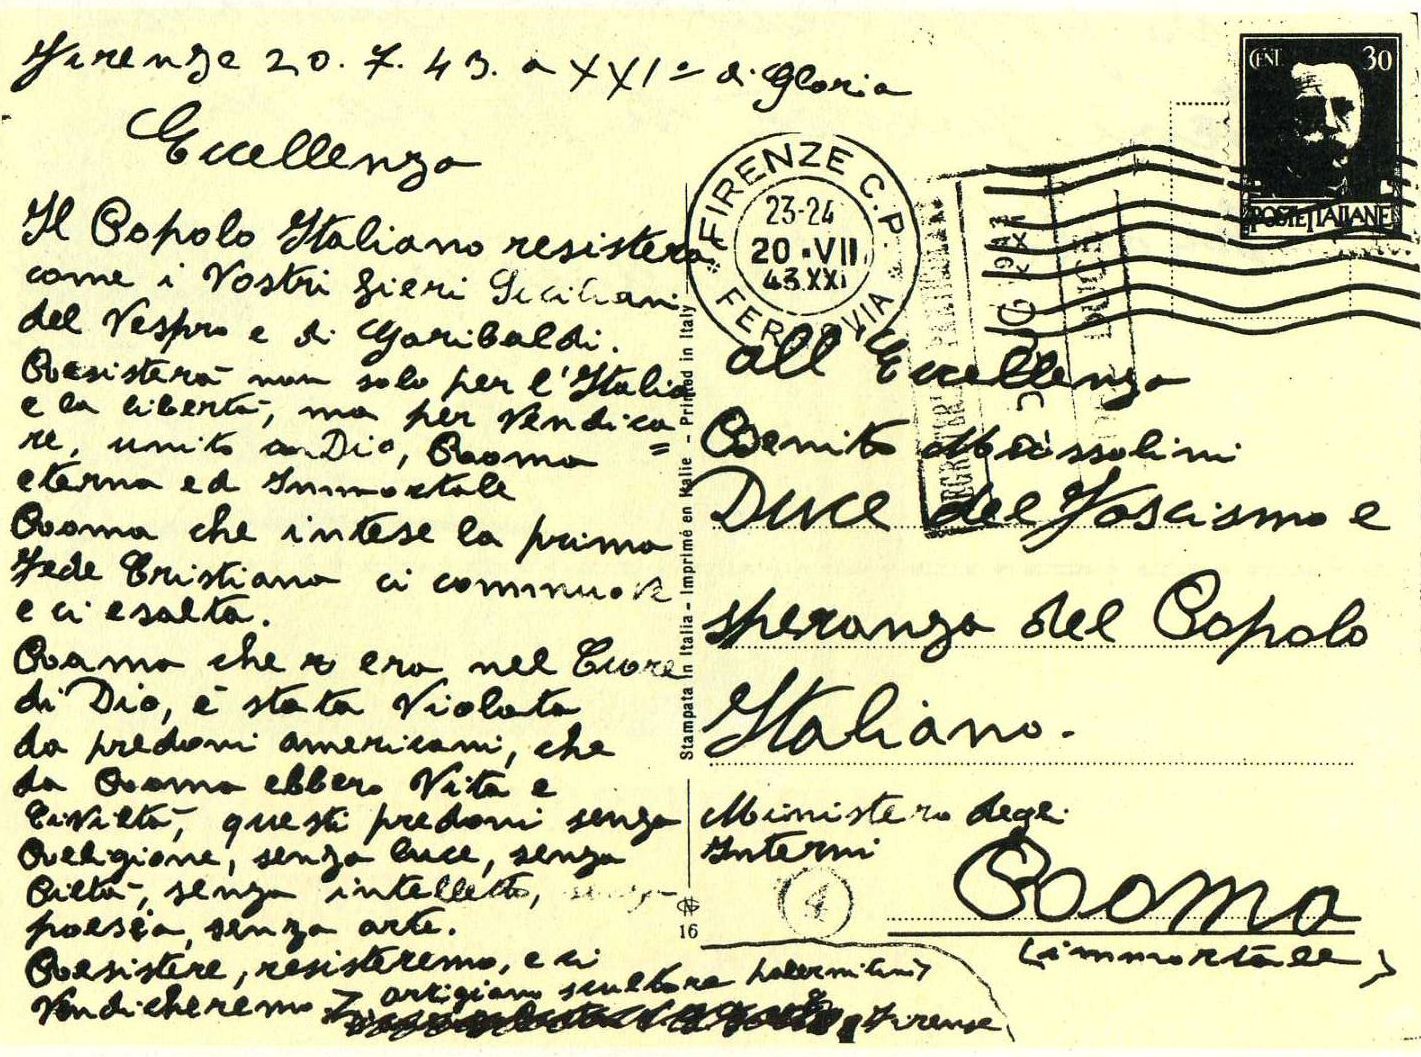 Firenze 20.7.43. a XXI° di Gloria
Eccellenza
Il Popolo Italiano resisterà
come i Vostri fieri Siciliani
del Vespro e di Garibaldi.
Resisterà non solo per l'Italia
e la libertà, ma per Vendica=
re, unito a Dio, Roma
eterna ed Immortale
Roma che intese la prima
Fede Cristiana ci commuove
e ci esalta.
Roma che era nel Cuore
di Dio, è stata Violata
da predoni americani, che
da Roma ebbero Vita e
Civiltà, questi predoni senza
Religione, senza luce, senza
Pietà, senza intelletto, senza
poesia, senza arte.
Resistere, resisteremo, e ci
Vendicheremo
artigiano scultore palermitano
Firenze
Stampata in Italia - Imprimé en Italie - Printed in Italy
16
CENT 30
POSTE ITALIANE
FIRENZE C.P.
23-24
20·VII
43.XXI
FERROVIA
all'Eccellenza
Benito Mussolini
Duce del Fascismo e
speranza del Popolo
Italiano.
Ministero degli
Interni
Roma
(immortale)
4